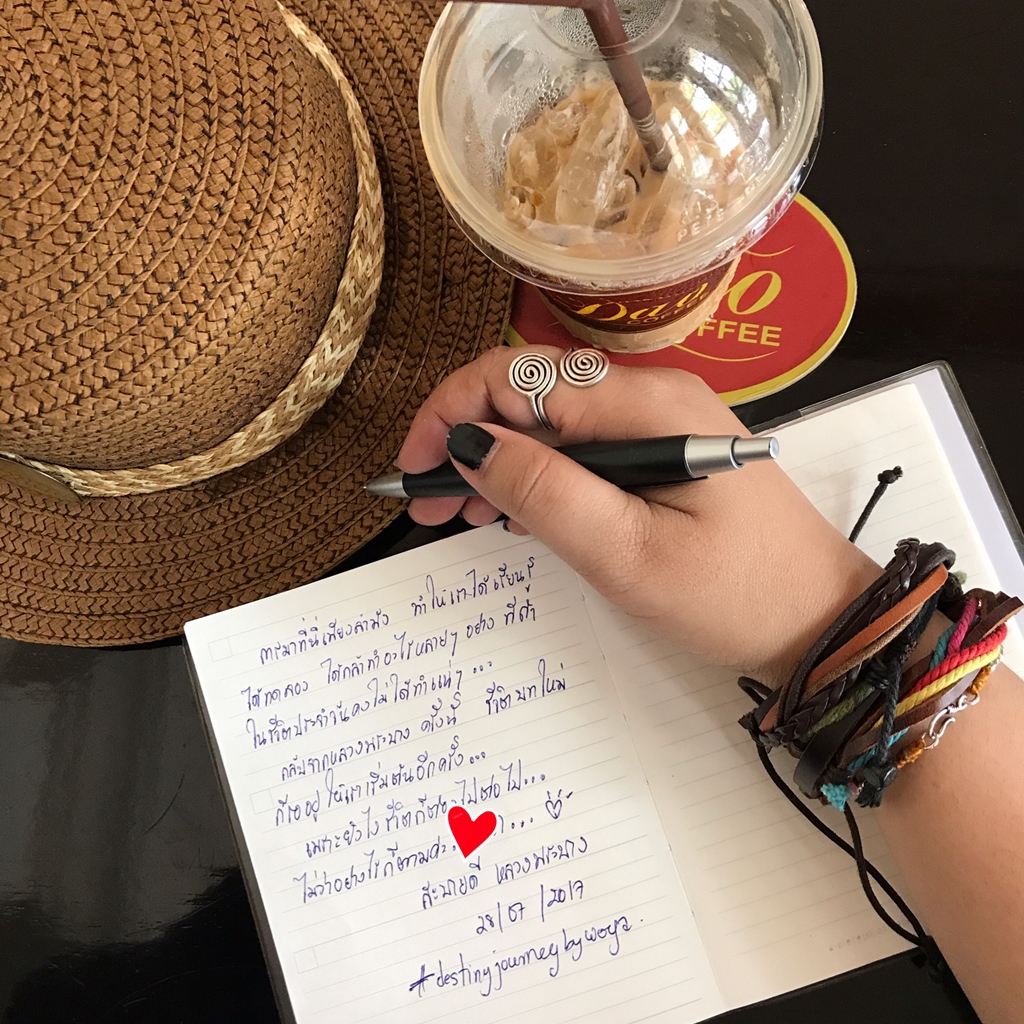 Dao
COFFEE
Dao
COFFEE
การมาที่นี่เพียงลำพัง ทำให้เราได้เรียนรู้
ได้ทดลอง ได้กล้าทำอะไรหลายๆ อย่าง ที่ถ้า
ในชีวิตประจำวันคงไม่ได้ทำแน่ๆ ...
กลับจากหลวงพระบาง ครั้งนี้ ชีวิตบทใหม่
ก็รออยู่ ให้เราเริ่มต้นอีกครั้ง...
เพราะยังไง ชีวิตก็ต้อง ไปต่อไป...
ไม่ว่าอย่างไรก็ตาม ...
สะบายดี หลวงพระบาง
28/07/2017
#destinyjourneybywoya.